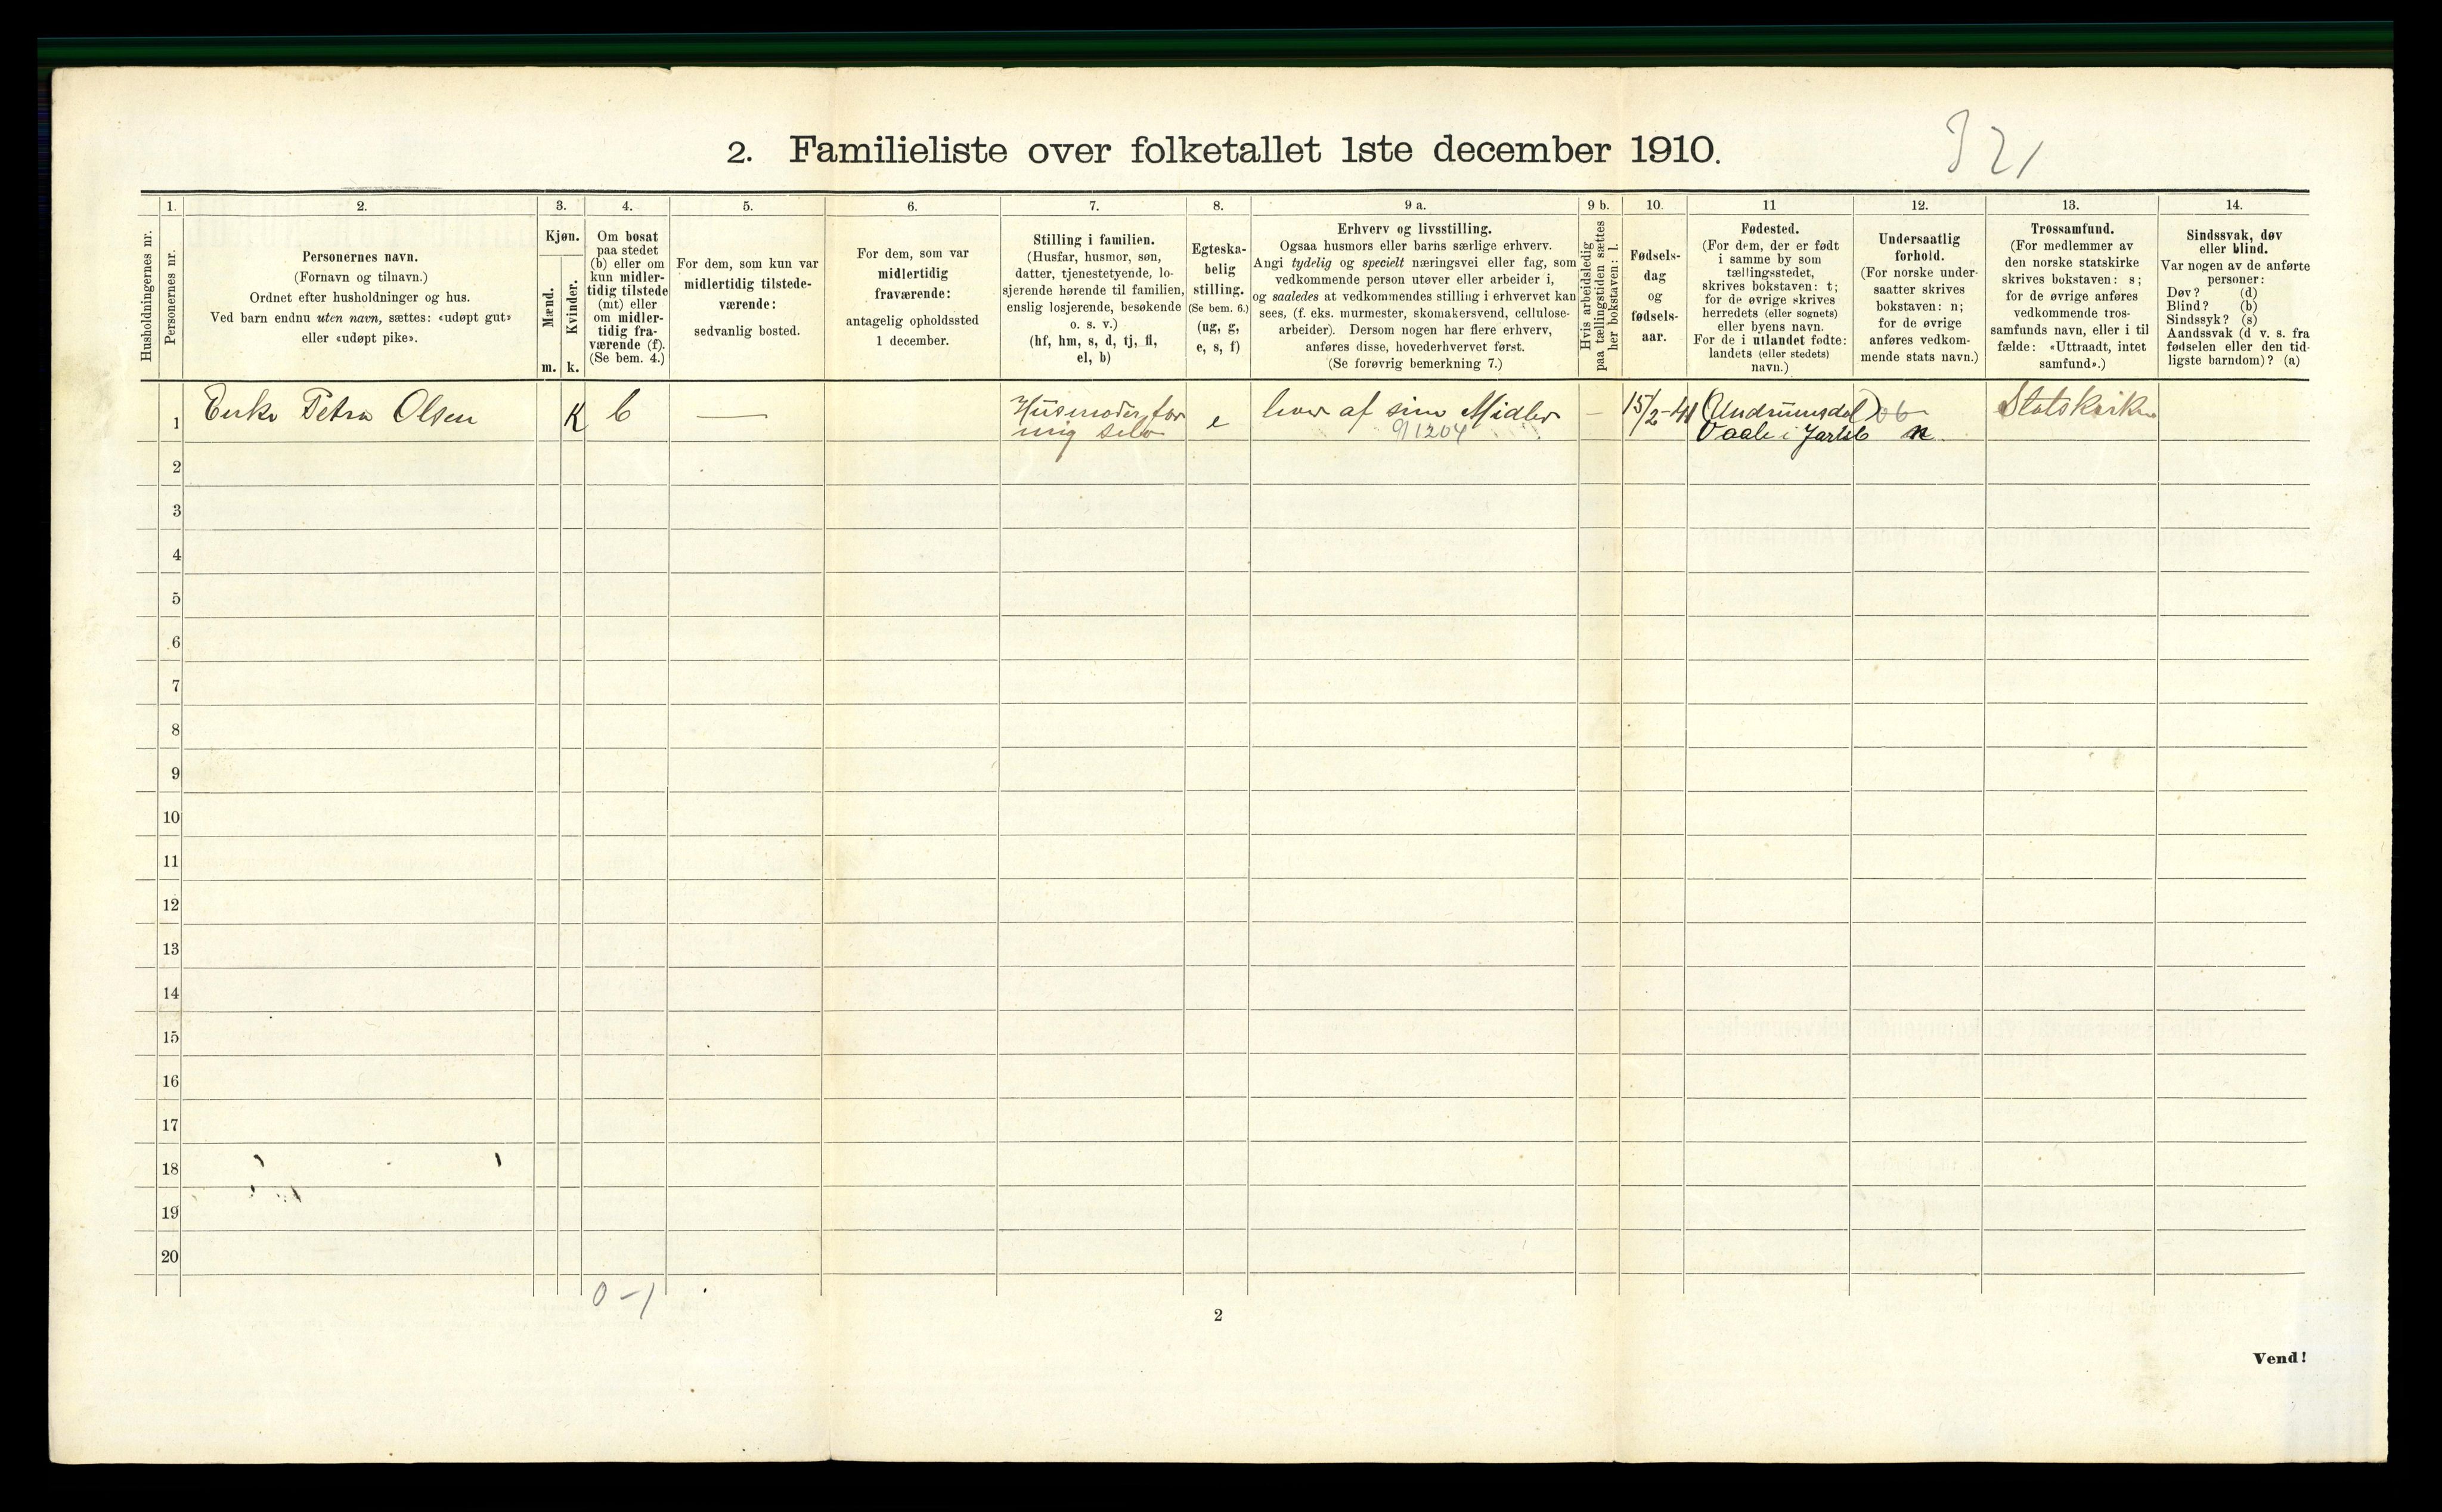 2. Familieliste over folketallet 1ste december 1910.
321
Husholdningernes nr.
1.
Personernes nr.
2.
Personernes navn.
(Fornavn og tilnavn.)
Ordnet efter husholdninger og hus.
Ved barn endnu uten navn, sættes: «udøpt gut»
eller «udøpt pike».
3.
Kjøn.
Mænd.
m.
Kvinder.
k.
4.
Om bosat
paa stedet
(b) eller om
kun midler-
tidig tilstede
(mt) eller
om midler-
tidig fra-
værende (f).
(Se bem. 4.)
5.
For dem, som kun var
midlertidig tilstede-
værende:
sedvanlig bosted.
6.
For dem, som var
midlertidig
fraværende:
antagelig opholdssted
1 december.
7.
Stilling i familien.
(Husfar, husmor, søn,
datter, tjenestetyende, lo-
sjerende hørende til familien,
enslig losjerende, besøkende
o. s. v.)
(hf, hm, s, d, tj, fl,
el, b)
8.
Egteska-
belig
stilling.
(Se bem. 6.)
(ug, g,
e, s, f)
9 a.
Erhverv og livsstilling.
Ogsaa husmors eller barns særlige erhverv.
Angi tydelig og specielt næringsvei eller fag, som
vedkommende person utøver eller arbeider i,
og saaledes at vedkommendes stilling i erhvervet kan
sees, (f. eks. murmester, skomakersvend, cellulose-
arbeider). Dersom nogen har flere erhverv,
anføres disse, hovederhvervet først.
(Se forøvrig bemerkning 7.)
9 b.
Hvis arbeidsledig
paa tællingstiden sættes
her bokstaven: l.
10.
Fødsels-
dag
og
fødsels-
aar.
11
Fødested.
(For dem, der er født
i samme by som
tællingsstedet,
skrives bokstaven: t;
for de øvrige skrives
herredets (eller sognets)
eller byens navn.
For de i utlandet fødte:
landets (eller stedets)
navn.)
12.
Undersaatlig
forhold.
(For norske under-
saatter skrives
bokstaven: n;
for de øvrige
anføres vedkom-
mende stats navn.)
13.
Trossamfund.
(For medlemmer av
den norske statskirke
skrives bokstaven: s;
for de øvrige anføres
vedkommende tros-
samfunds navn, eller i til
fælde: «Uttraadt, intet
samfund».)
14.
Sindssvak, døv
eller blind.
Var nogen av de anførte
personer:
Døv? (d)
Blind? (b)
Sindssyk? (s)
Aandssvak (d v. s. fra
fødselen eller den tid-
ligste barndom)? (a)
1 Enke Petra Olsen K b — Husmoder for e lever af sine Midler – 15/2-41 (Undrumsdal) Statskirke
mig selv 91204 Vaale i Jarlsb n
2
3
4
5
6
7
8
9
10
11
12
13
14
15
16
17
18
19
20
0-1
2
Vend!